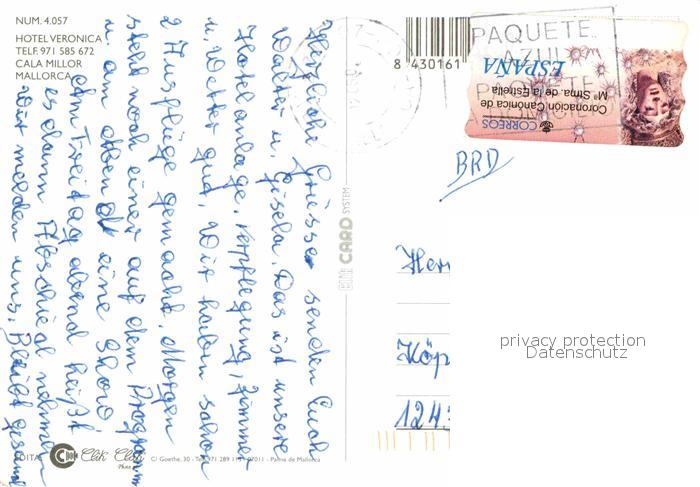 NUM. 4.057
HOTEL VERONICA
TELF. 971 585 672
CALA MILLOR
MALLORCA
Herzliche Grüsse senden Euch
Walter u. Gisela. Das ist unsere
Hotelanlage, Verpflegung, Zimmer
u. Wetter gut, Wir haben schon
2 Ausflüge gemacht, Morgen
steht noch einer auf dem Programm
u. am Abend eine Show
Am Freitag abend heißt
es dann Abschied nehmen
Wir melden uns, Bleibt gesund
8 430161
PAQUETE
AZUL
PAQUETE
ESPAÑA
Coronación Canónica de
Mª Stma. de la Estrella
CORREOS
BRD
CARD SYSTEM
Herr
Köp
124
privacy protection
Datenschutz
EDITA:
Clik Clak
Photo
C/ Goethe, 30 - Tel. 971 289 11 - 07011 - Palma de Mallorca